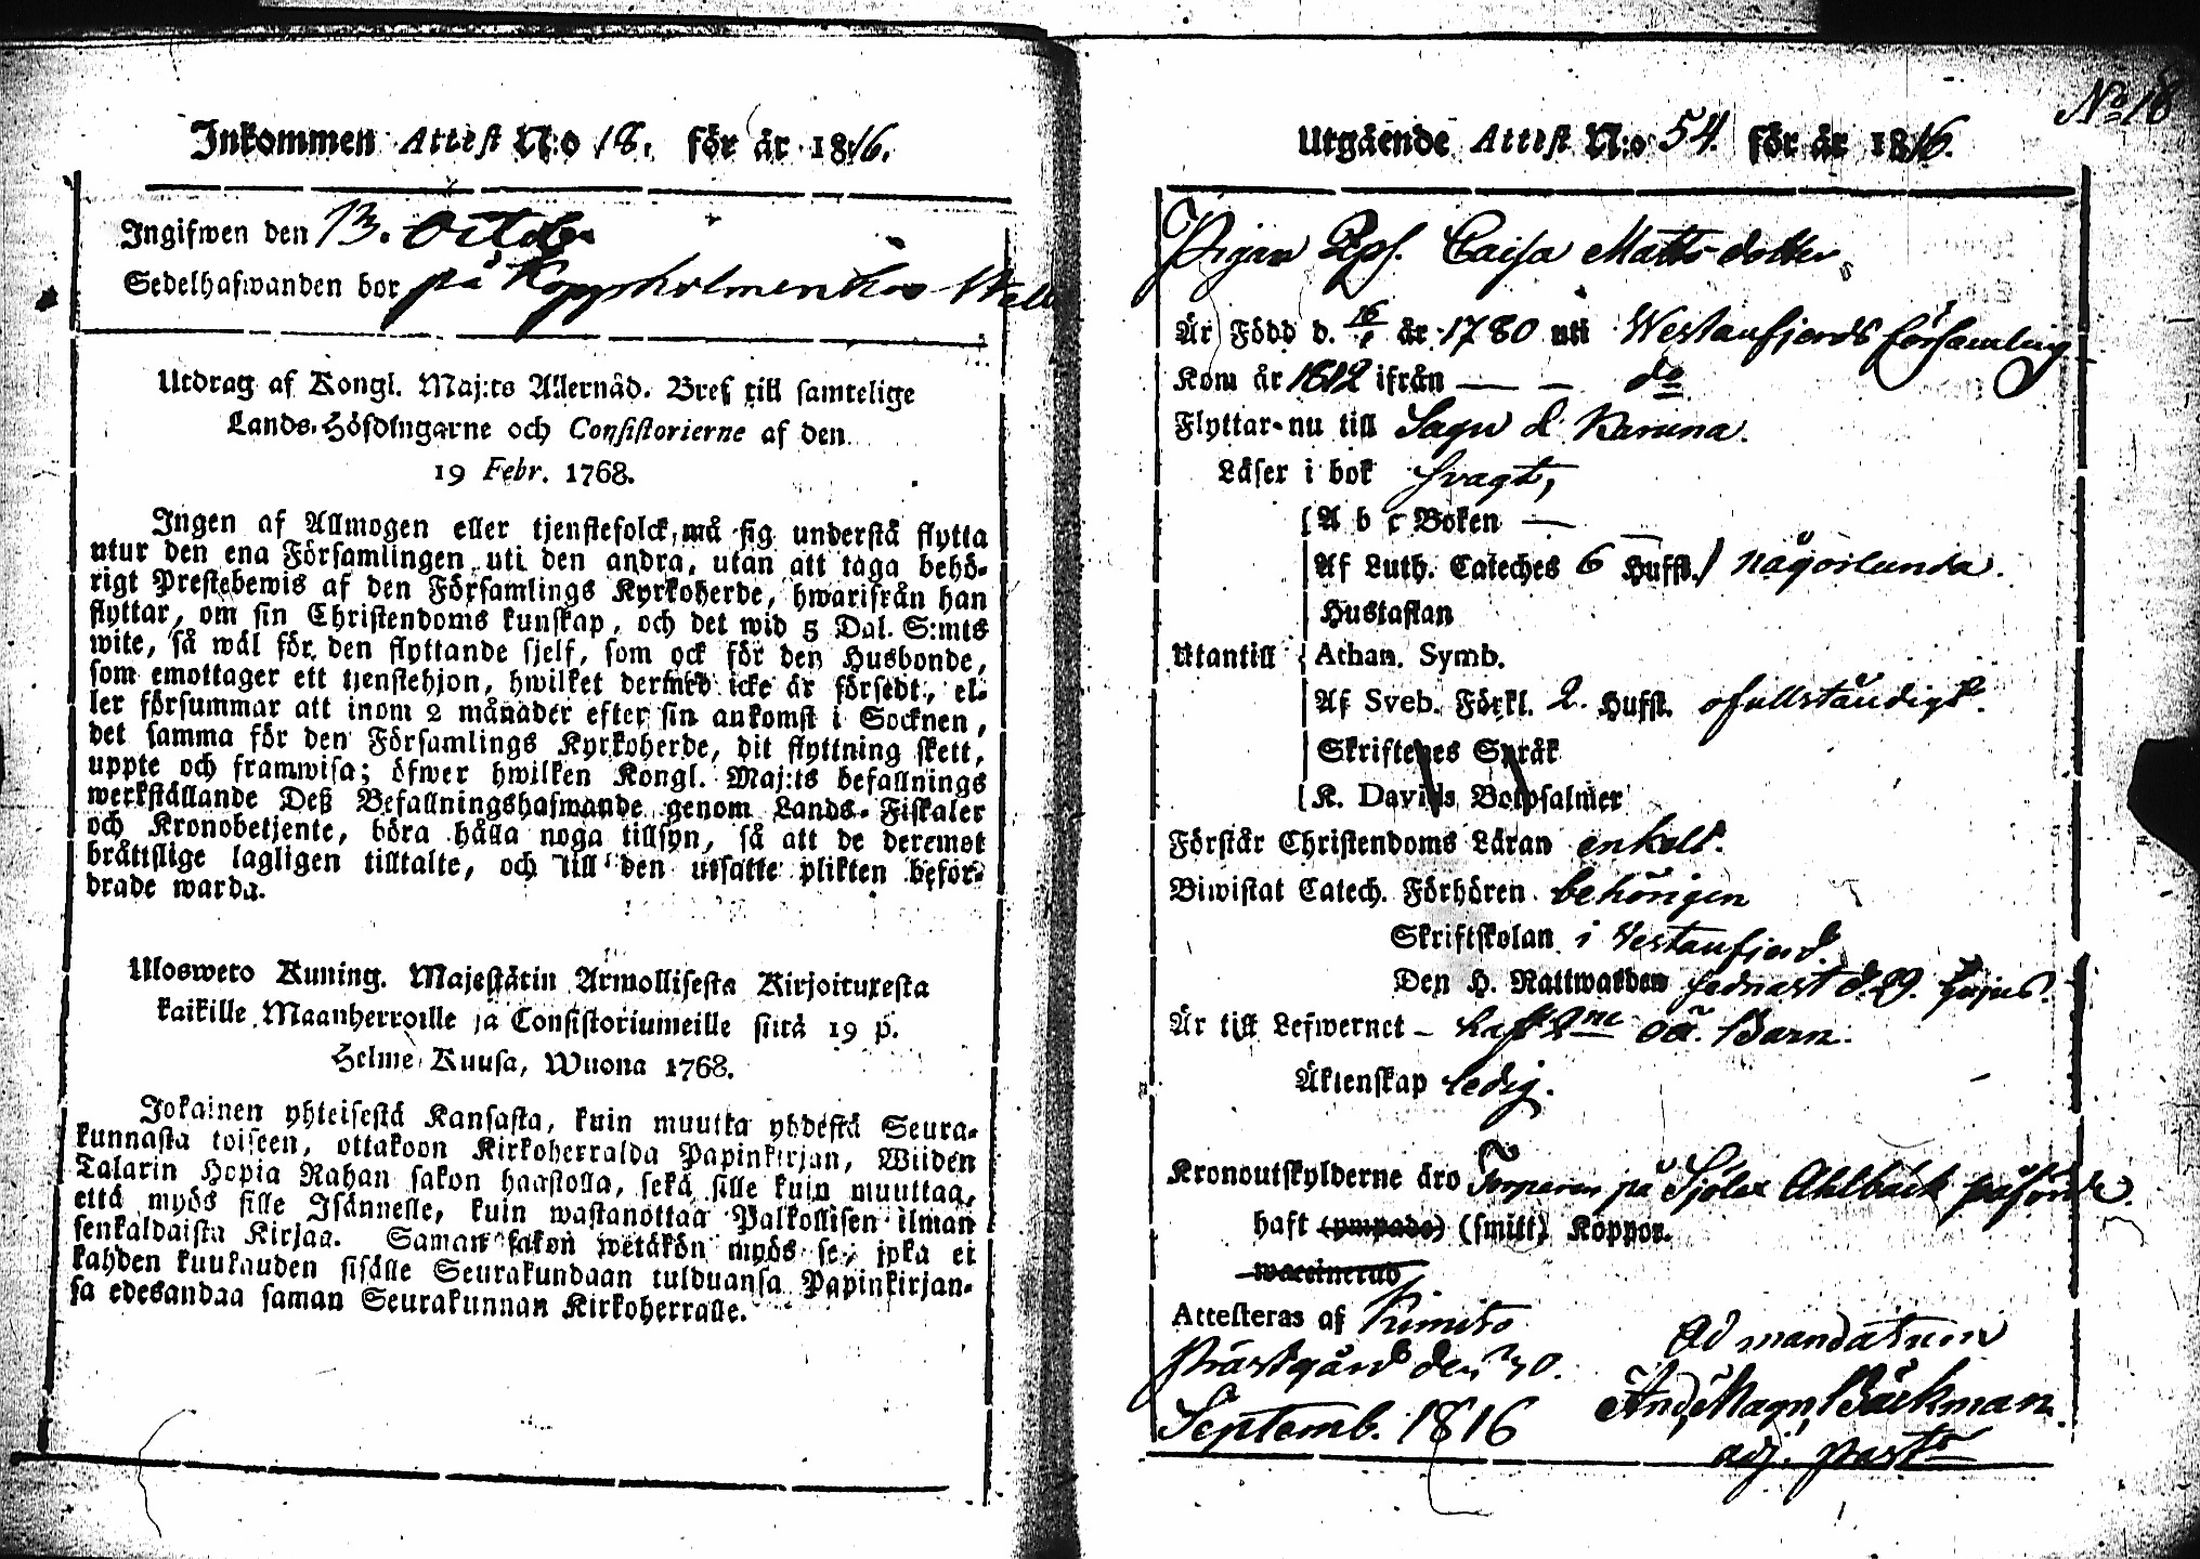 Inkommen Attest N:o 18. för år 1816.
Ingifwen den 13. Octobr
Sedelhafwanden bor på Koppholmen hos
Utdrag af Kongl. Maj:ts Allernåd. Bref till samtelige
Lands-Höfdingarne och Consistorierne af den
19 Febr. 1768.
Ingen af Allmogen eller tjenstefolck, må sig understå flytta
utur den ena Församlingen uti den andra, utan att taga behö-
rigt Prestebewis af den Församlings Kyrkoherde, hwarifrån han
flyttar, om sin Christendoms kunskap, och det wid 5 Dal. S:mts
wite, så wäl för den flyttande sjelf, som ock för den Husbonde,
som emottager ett tjenstehjon, hwilket dermed icke är försedt, el-
ler försummar att inom 2 månader efter sin ankomst i Socknen,
det samma för den Församlings Kyrkoherde, dit flyttning skett,
uppte och framwisa; öfwer hwilken Kongl. Maj:ts befallnings
werkställande Deß Befallningshafwande genom Lands-Fiskaler
och Kronobetjente, böra hålla noga tillsyn, så att de deremot
bråttslige lagligen tilltalte, och till den utsatte plikten beför-
drade warda.
Uloswero Kuning. Majestätin Armollisesta Kirjoituxesta
kaikille Maanherroille ja Consistoriumeille siitä 19 p.
Helme Kuusa, Wuona 1768.
Jokainen yhteisestä Kansasta, kuin muutta yhdestä Seura-
kunnasta toiseen, ottakoon Kirkoherralda Papinkirjan, Wiiden
Talarin Hopia Rahan sakon haastolla, sekä sille kuin muuttaa,
että myös sille Isännelle, kuin wastanottaa Palkollisen ilman
senkaldaista Kirjaa. Saman sakon wetäkön myös se, joka ei
kahden kuukauden sisälle Seurakundaan tulduansa Papinkirjan-
sa edesandaa saman Seurakunnan Kirkoherralle.
No 18
Utgående Attest N:o 54. för år 1816.
Pigan Caisa Mattsdotter
Är Född d. 16 år 1780 uti Westanfjerds församling
Kom år 1812 ifrån — — do
Flyttar nu till Sagu & Karuna.
Läser i bok svagt,
A b c Boken —
Af Luth. Cateches 6 Hufst. någorlunda.
Hustaflan
Utantill Athan. Symb.
Af Sveb. Förkl. 2. Hufst. ofullständigt.
Skriftenes Språk
K. Davids Botpsalmer
Förstår Christendoms Läran enkelt.
Biwistat Catech. Förhören behörigen
Skriftskolan i Vestanfjerd.
Den H. Nattwarden sednast d. 29. hujus.
Är till Lefwernet – haft 2ne oä. Barn.
Äktenskap ledig.
Kronoutskylderne äro Torparen på Sjölax Ahlbäck påförde.
haft (ympade) (smitt) Koppor.
waccinerad
Attesteras af Kimito
Prästgård den 30.
Septemb. 1816
Ad mandatum
And. Magn. Bäckman
adj. past.